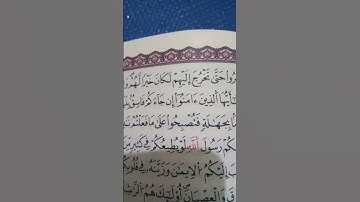 رُوا۟ حَتَّىٰ تَخْرُجَ إِلَيْهِمْ لَكَانَ خَيْرًا لَّهُمْ وَ
يَـٰٓأَيُّهَا ٱلَّذِينَ ءَامَنُوٓا۟ إِن جَآءَكُمْ فَاسِقٌۢ
بِجَهَـٰلَةٍ فَتُصْبِحُوا۟ عَلَىٰ مَا فَعَلْتُمْ
كُمْ رَسُولَ ٱللَّهِ لَوْ يُطِيعُكُمْ فِى كَثِيرٍ
إِلَيْكُمُ ٱلْإِيمَـٰنَ وَزَيَّنَهُۥ فِى قُلُوبِكُ
قَ وَٱلْعِصْيَانَ أُو۟لَـٰٓئِكَ هُمُ